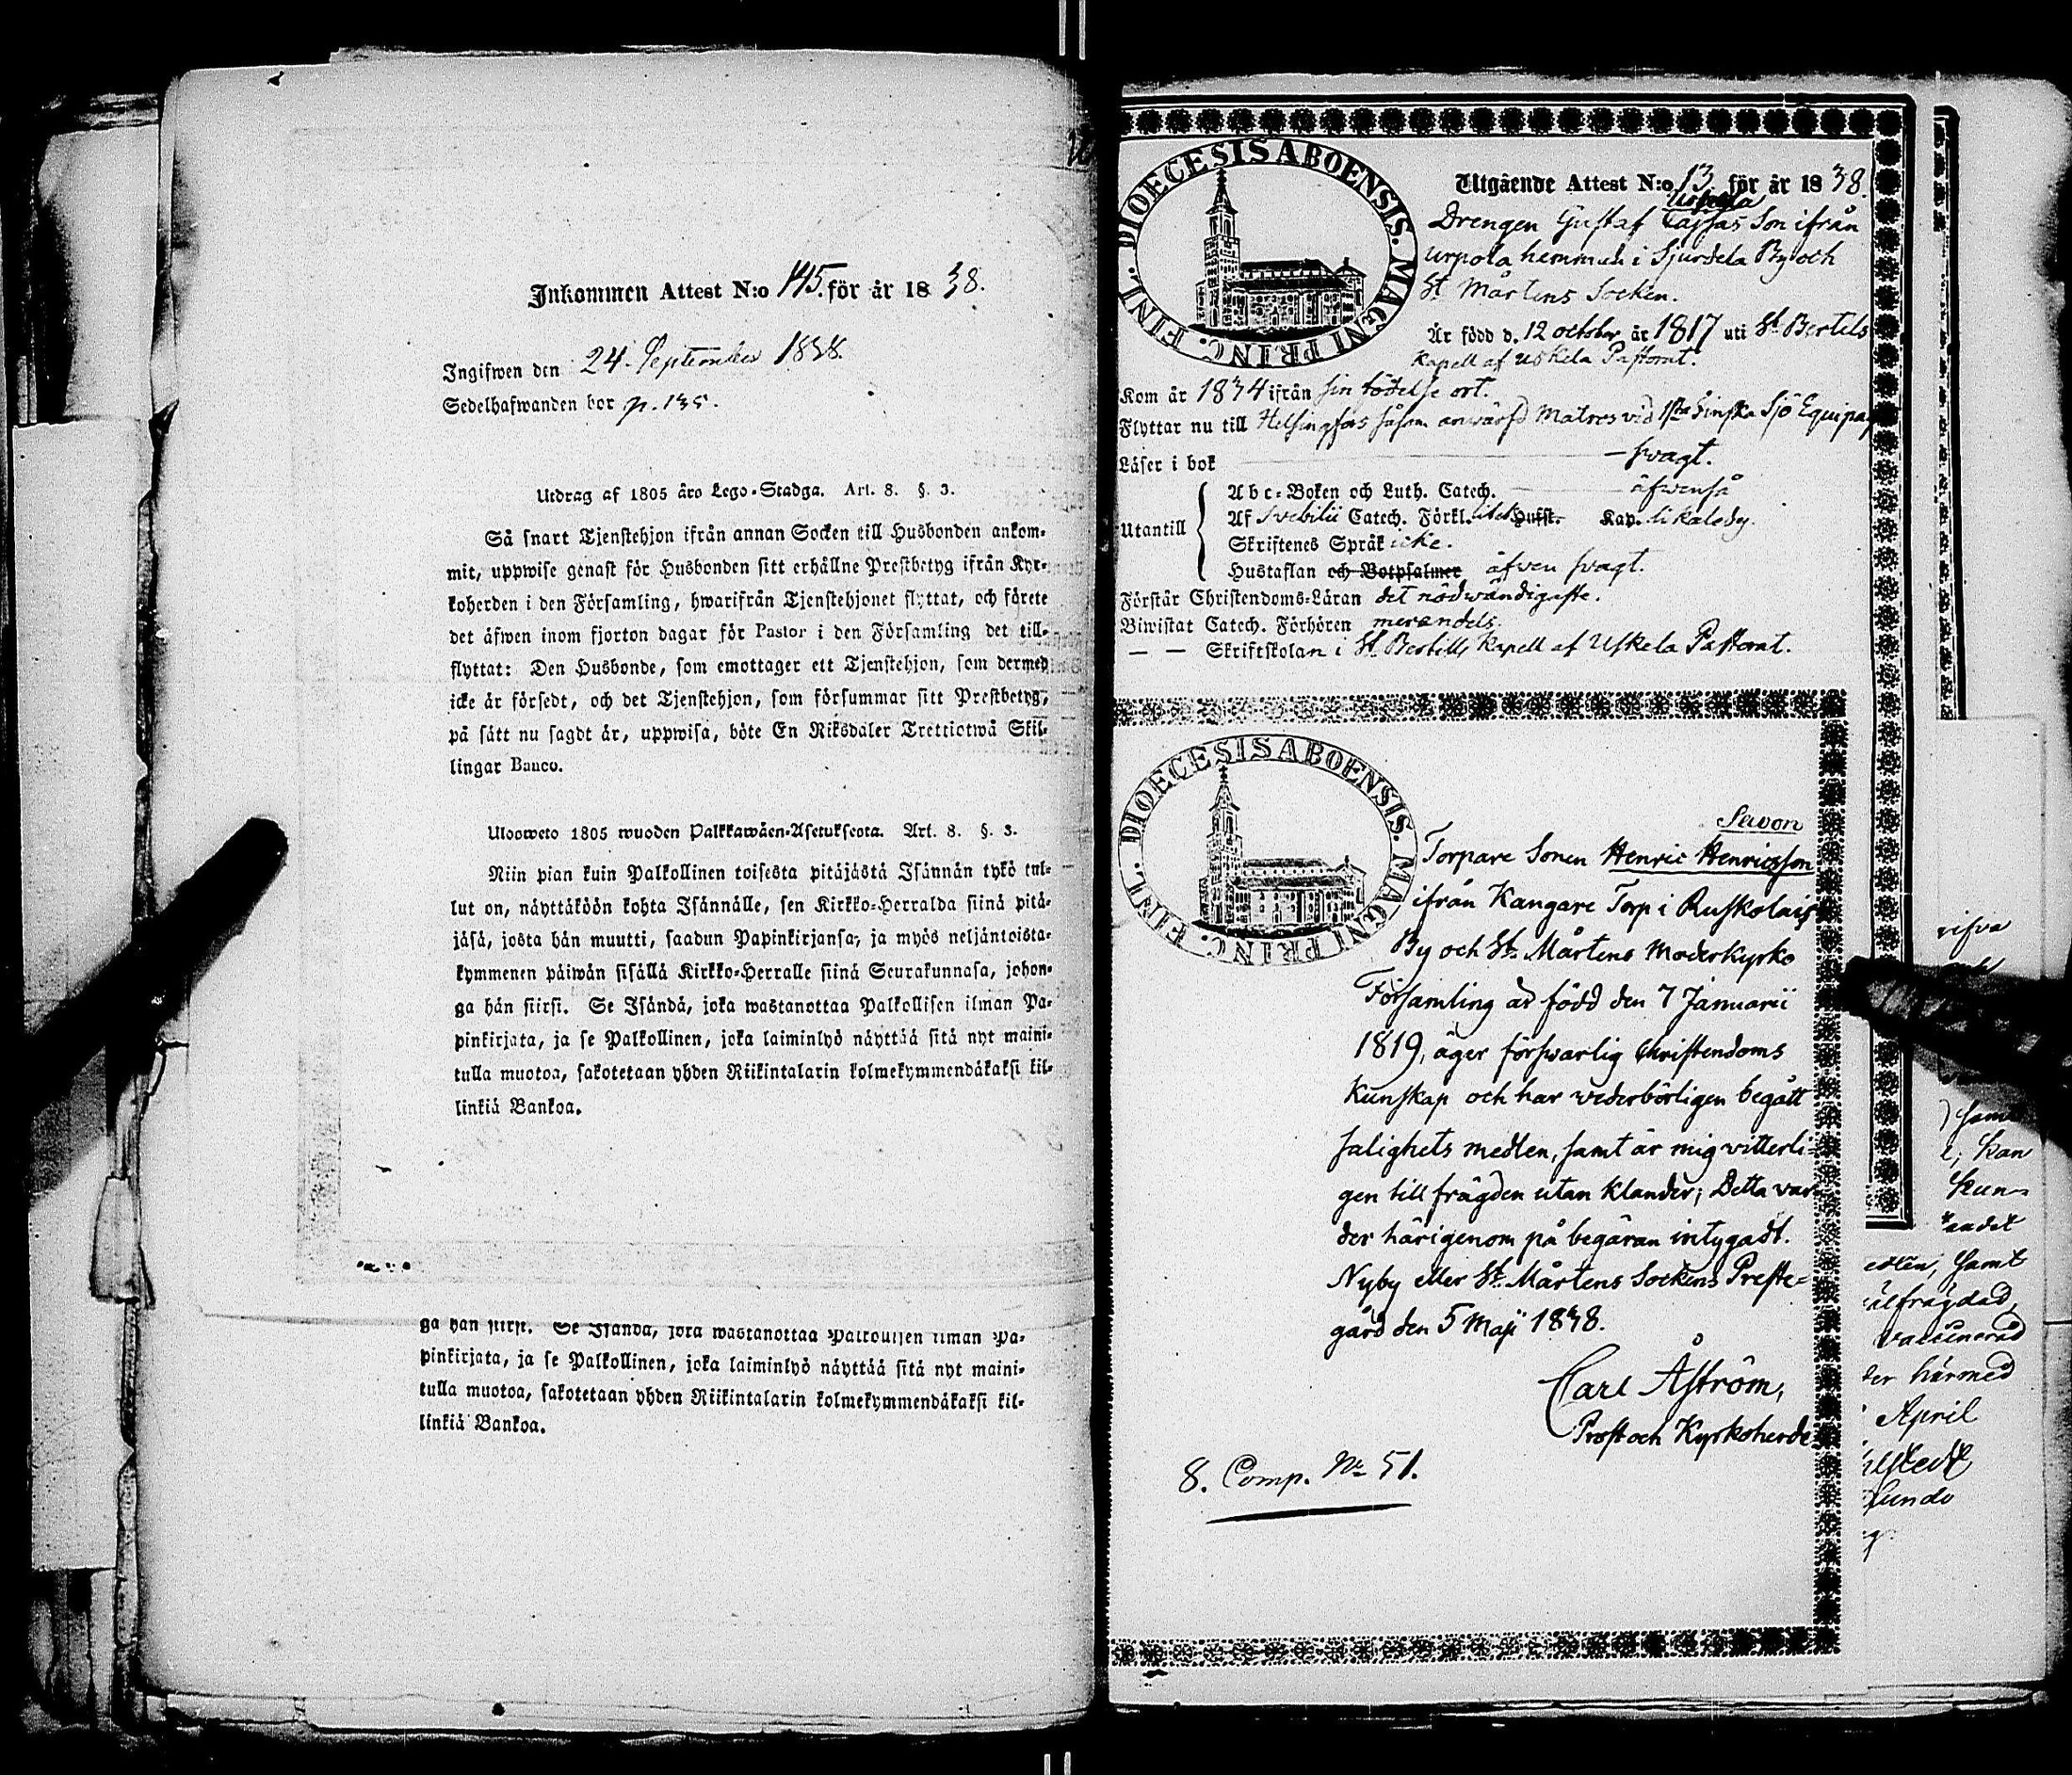 Inkommen Attest N:o 145. för år 1838.
Ingifwen den 24. September 1838.
Sedelhafwanden bor p. 135.
Utdrag af 1805 års Lego-Stadga. Art. 8. §. 3.
Så snart Tjenstehjon ifrån annan Socken till Husbonden ankom-
mit, uppwise genast för Husbonden sitt erhållne Prestbetyg ifrån Kyr-
koherden i den Församling, hwarifrån Tjenstehjonet flyttat, och förete
det äfwen inom fjorton dagar för Pastor i den Församling det till-
flyttat: Den Husbonde, som emottager ett Tjenstehjon, som dermed
icke är försedt, och det Tjenstehjon, som försummar sitt Prestbetyg,
på sätt nu sagdt är, uppwisa, böte En Riksdaler Trettiotwå Skil-
lingar Banco.
Uloosweto 1805 wuoden Palkkawäen-Asetuksesta. Art. 8. §. 3.
Niin pian kuin Palkollinen toisesta pitäjästä Isännän tykö tul-
lut on, näyttäköön kohta Isännälle, sen Kirkko-Herralda siinä pitä-
jäsä, josta hän muutti, saadun Papinkirjansa, ja myös neljäntoista-
kymmenen päiwän sisällä Kirkko-Herralle siinä Seurakunnasa, johon-
ga hän siirsi. Se Isändä, joka wastanottaa Palkollisen ilman Pa-
pinkirjata, ja se Palkollinen, joka laiminlyö näyttää sitä nyt maini-
tulla muotoa, sakotetaan yhden Riikintalarin kolmekymmendäkaksi kil-
linkiä Bankoa.
ga hän siirsi. Se Isändä, joka wastanottaa Palkollisen ilman Pa-
pinkirjata, ja se Palkollinen, joka laiminlyö näyttää sitä nyt maini-
tulla muotoa, sakotetaan yhden Riikintalarin kolmekymmendäkaksi kil-
linkiä Bankoa.
DIOECESIS ABOENSIS. MAGNI PRINC. FINL.
Utgående Attest N:o 13 för år 1838.
Drengen Gustaf Son ifrån
Urpola hemman i Sjurdela By och
St Mårtens Socken.
Är född d. 12 october år 1817 uti St Bertils
Kapell af Uskela Pastorat.
Kom år 1834 ifrån sin födelse ort.
Flyttar nu till Helsingfors såsom anvärfd Matros vid 1sta Finska Sjö Equipag
Läser i bok — svagt.
Abc-Boken och Luth. Catech. äfvenså
Utantill
Af Svebilii Catech. Förkl. litet Hufst. Kap. likaledes.
Skriftenes Språk icke.
Hustaflan och Botpsalmer äfven svagt.
Förstår Christendoms-Läran det nödvändigaste.
Biwistat Catech. Förhören merendels.
— — Skriftskolan i St Bertills Kapell af Uskela Pastorat.
DIOECESIS ABOENSIS. MAGNI PRINC. FINL.
Savon
Torpare Sonen Henric Henricsson
ifrån Kangare Torp i Ruskolais
By och St Mårtens Moderkyrko
Församling är född den 7 Januarii
1819, äger försvarlig Christendoms
Kunskap och har vederbörligen begått
salighets medlen, samt är mig vitterli-
gen till frägden utan klander; Detta var
der härigenom på begäran intygadt.
Nyby eller St Mårtens Sockens Preste-
gård den 5 Maji 1838.
Carl Åström,
Prost och Kyrkoherde
8. Comp. No 51.
rifva
samt
kan
kun-
andet
edlen, samt
älfrägdad,
vaccinerad
der härmed
April